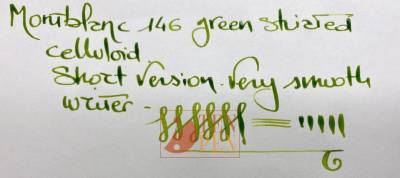 Montblanc 146 green striated
celluloid
Short Version. Very smooth
writer -
PEN